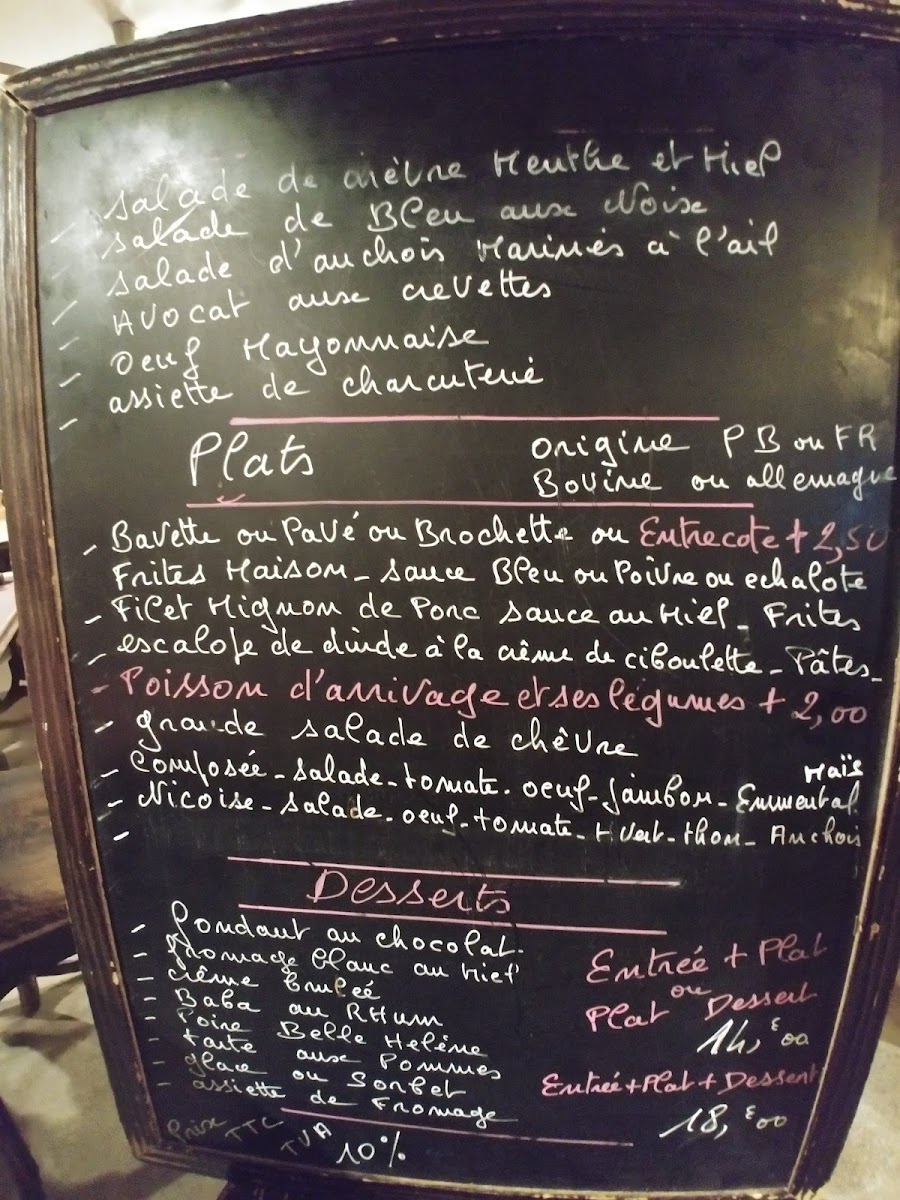 - salade de chèvre Menthe et Miel
- salade de Bleu aux Noix
- salade d'anchois Marinés à l'ail
- Avocat aux crevettes
- Oeuf Mayonnaise
- assiette de charcuterie
Plats
Origine PB ou FR
Bovine ou allemagne
- Bavette ou Pavé ou Brochette ou Entrecote + 2,50
Frites Maison - sauce Bleu ou Poivre ou echalote
- Filet Mignon de Porc sauce au Miel - Frites
- escalope de dinde à la crême de ciboulette - Pâtes -
- Poisson d'arrivage et ses légumes + 2,00
- grande salade de chêvre
- Composée - salade - tomate - oeuf - jambon - Emmental Maïs
- Nicoise - salade - oeuf - tomate - H Vert - thon - Anchois
-
Desserts
- fondant au chocolat
- fromage blanc au Miel
- crême bruleé
- Baba au RHum
- Poire Belle Helêne
- tarte aux Pommes
- glace ou Sorbet
- assiette de Fromage
Entreé + Plat
ou
Plat Dessert
14,€00
Entreé + Plat + Dessert
18,€00
Prix TTC
TVA 10%